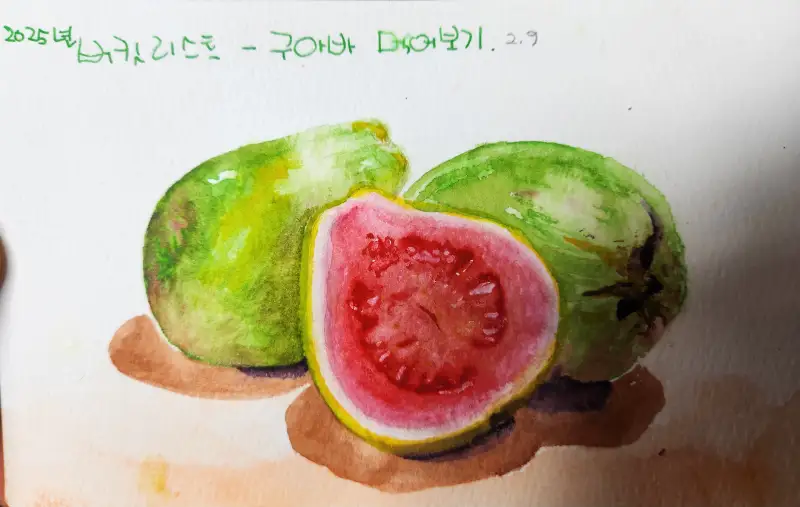 2025년 버킷리스트 - 구아바 먹어보기. 2.9